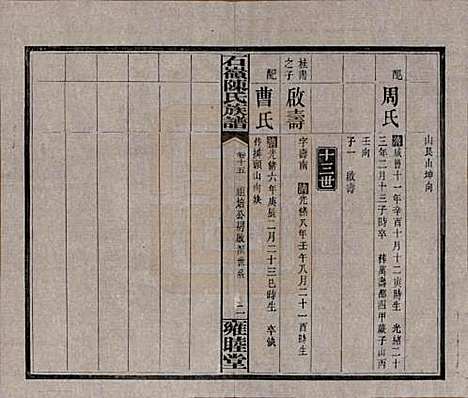 山艮山坤向
配 周氏 清咸豐十一年辛酉十月十二寅時生 光緒二十
三年二月十三子時卒 葬萬壽都四甲葳子山丙
壬向
子一 啟壽
十三世
桂甫
之子 啟壽 字壽南 清光緒八年壬午八月二十一酉時生
配 曹氏 清光緒六年庚辰二月二十三巳時生 卒缺
葬獅頭山向缺
石嶺陳氏族譜 卷十五 二 雍睦堂